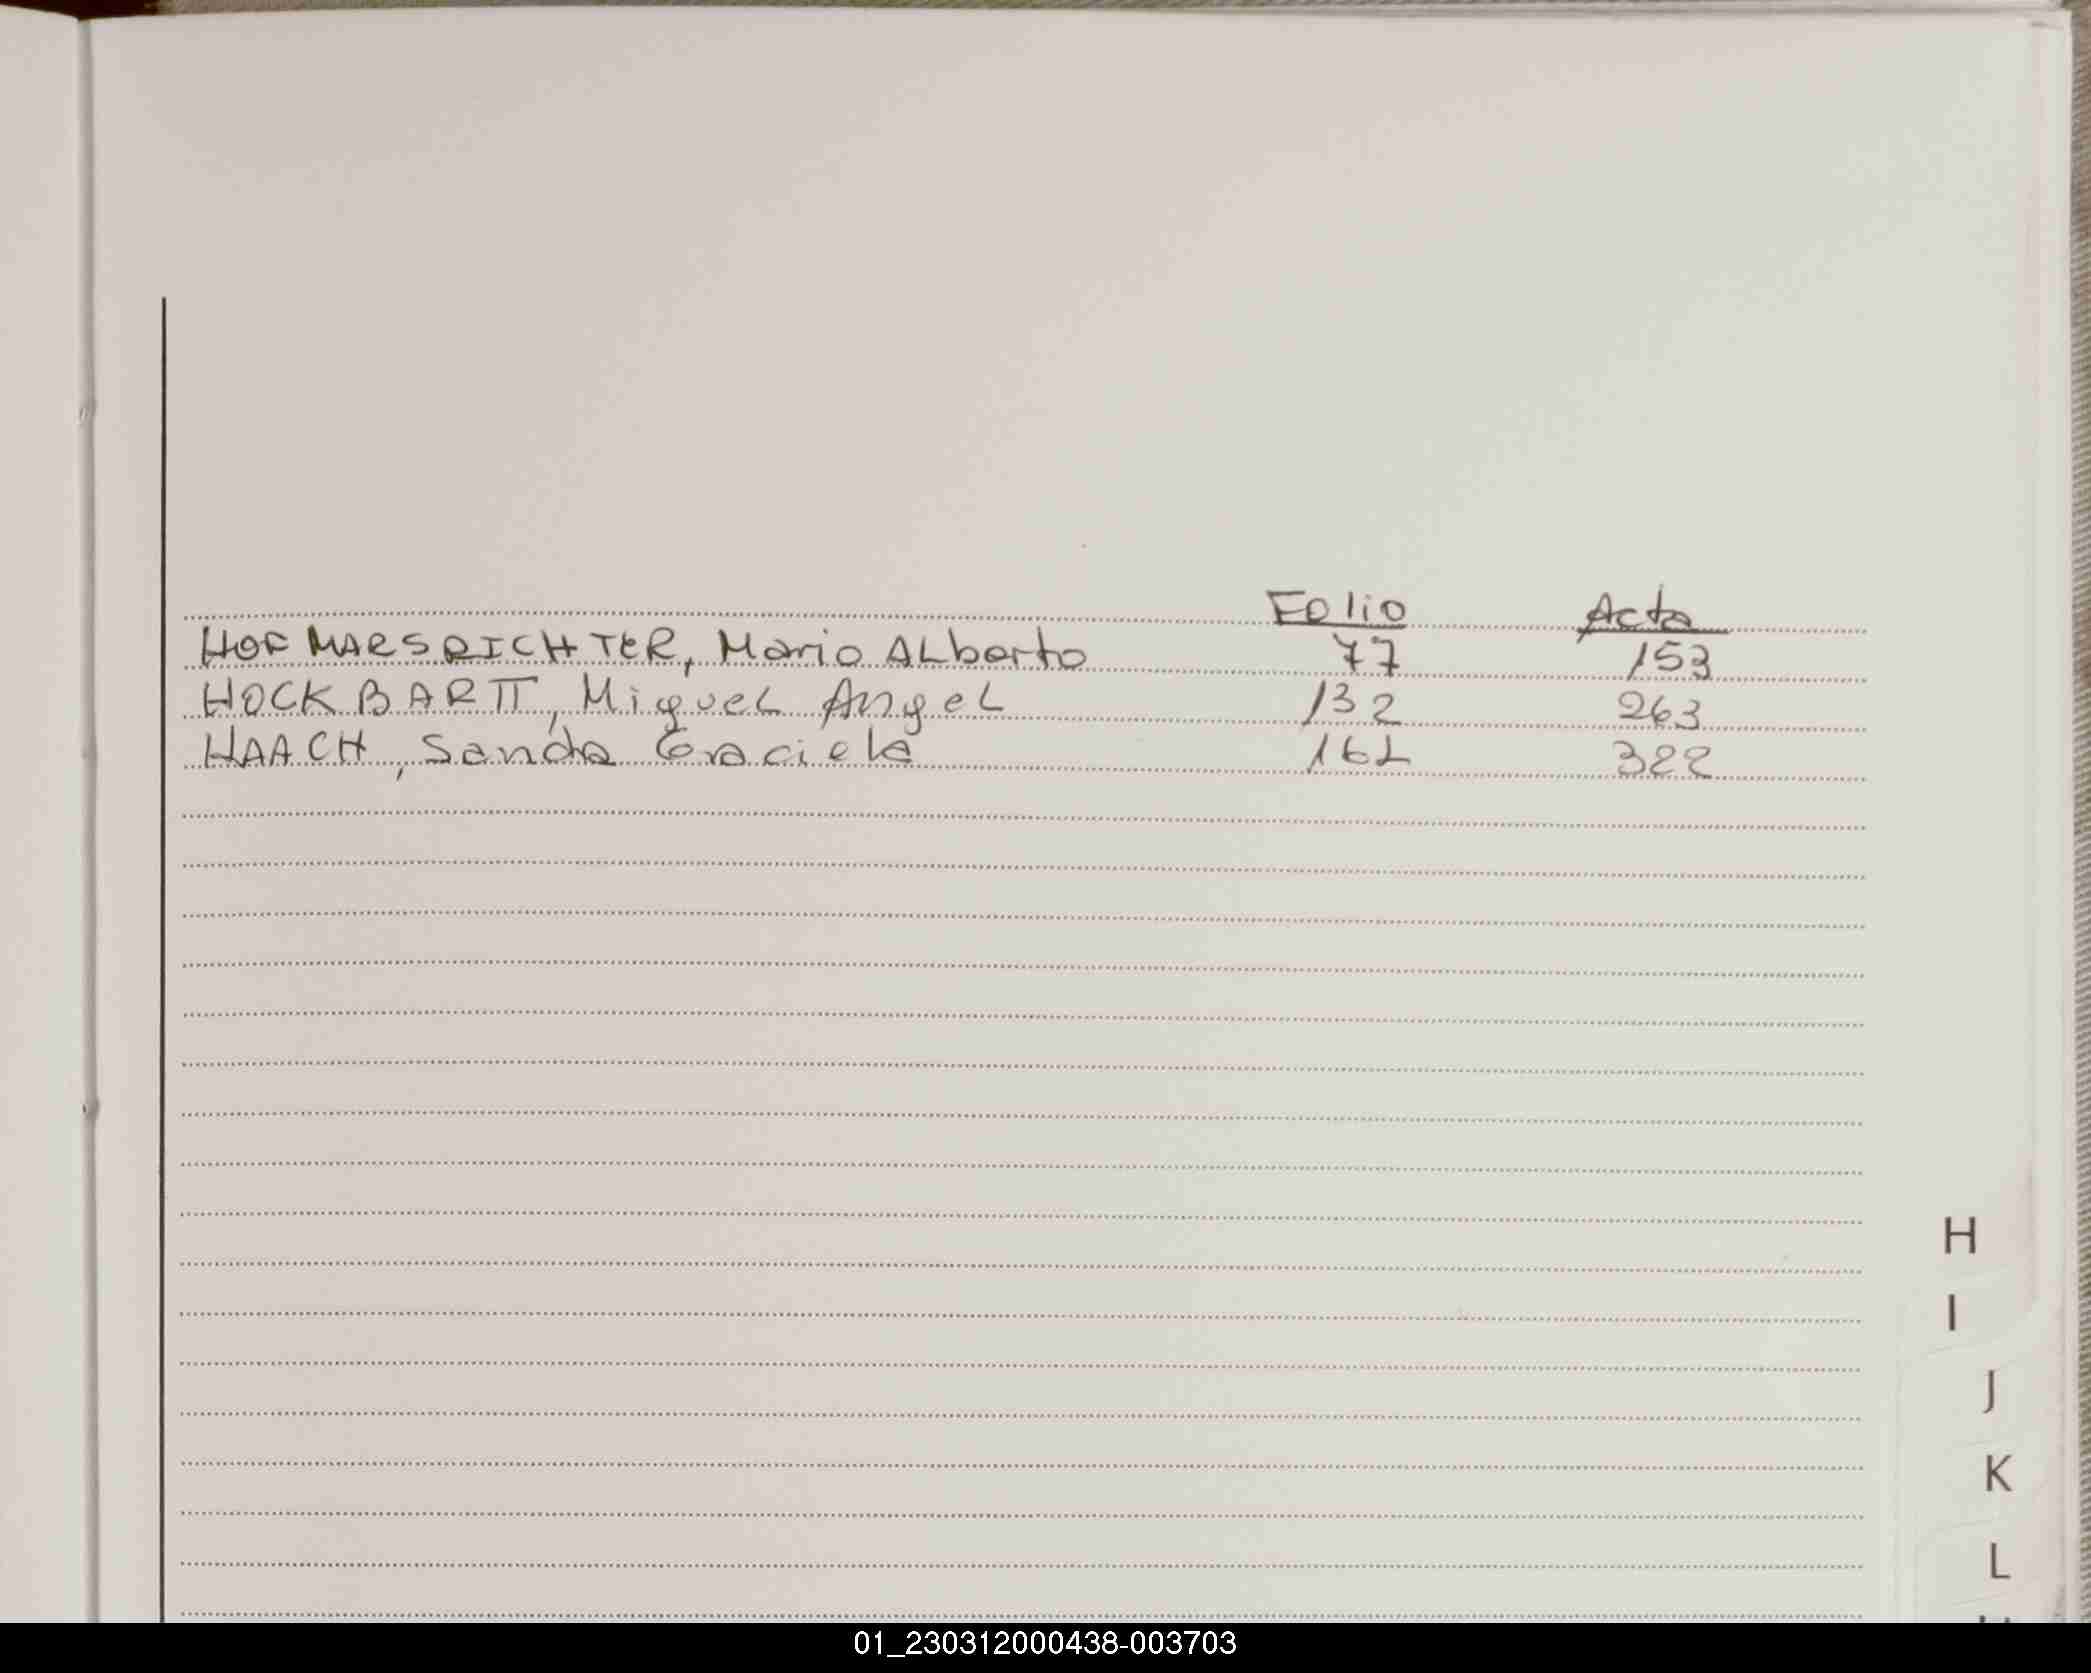 Folio Acta
HOFMARSRICHTER, Mario ALberto 77 153
HOCK BARTT, Miguel Angel 132 263
HAACH, Sanda Graciela 162 322
H
I
J
K
L
01_230312000438-003703